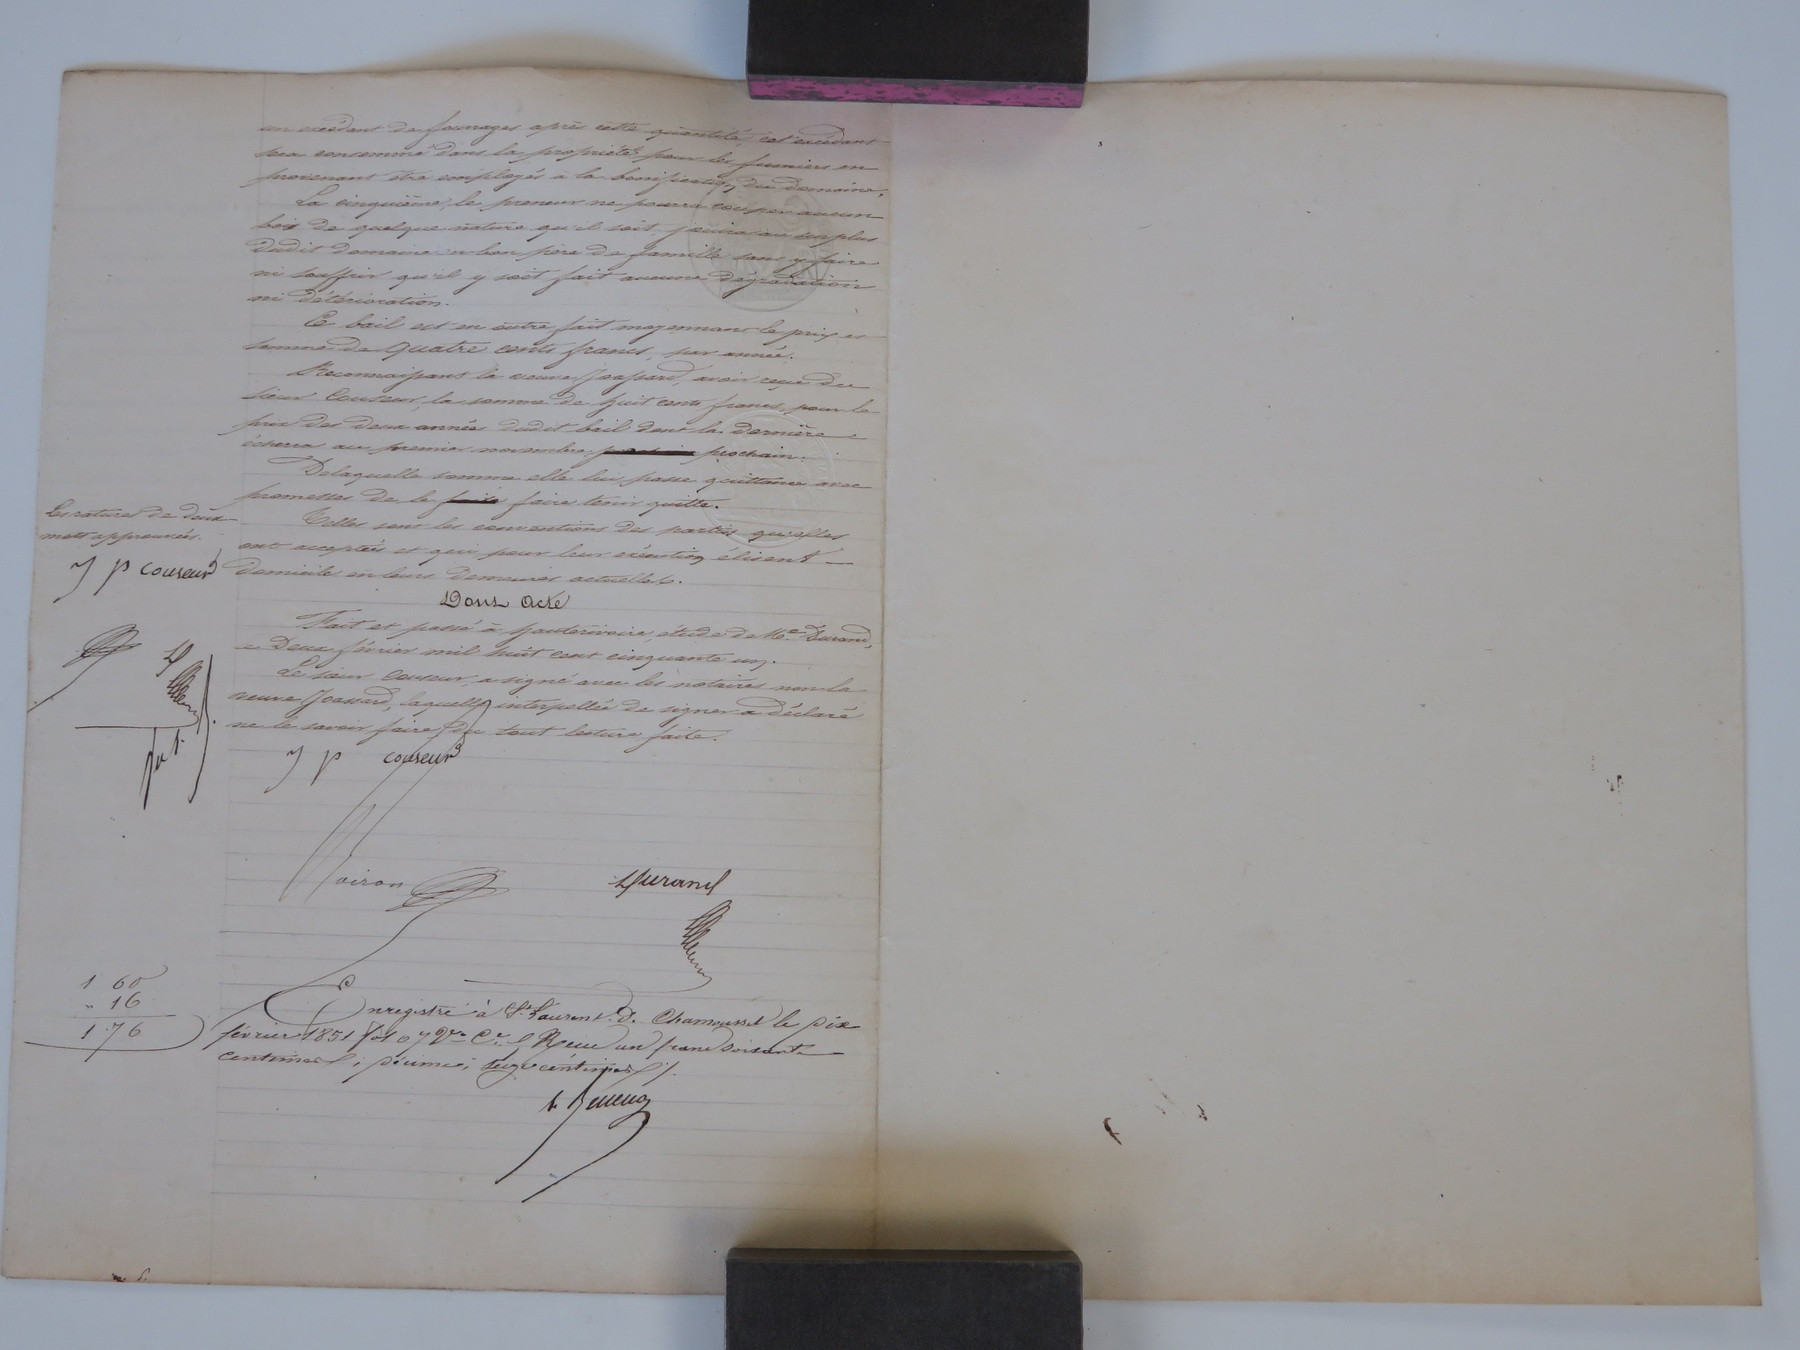 un excédant de fourrages après cette quantité, cet excédant
sera consommé dans la propriété pour les fumiers en
provenant être employés à la bonification du domaine.
La cinquième, le preneur ne pourra couper aucun
bois de quelque nature qu'il soit, jouira au surplus
dudit domaine en bon père de famille sans y faire
ni souffrir qu'il y soit fait aucune dégradation
ni détérioration.
Ce bail est en outre fait moyennant le prix et
somme de quatre cents francs, par année.
Reconnaissant la veuve Joassard, avoir reçu du
sieur Couseur, la somme de huit cents francs, pour le
prix des deux années dudit bail dont la dernière
écherra au premier novembre prochain.
Delaquelle somme elle lui passe quittance avec
promesses de le faire tenir quitte.
Telles sont les conventions des parties qu'elles
ont acceptées et qui pour leur exécution élisent
domicile en leurs demeures actuelles.
Dont Acte
Fait et passé à hauterivoire, étude de Me. Durand,
le Deux février mil huit cent cinquante un.
Le sieur Couseur, a signé avec les notaires non la
veuve Joassard, laquelle interpellée de signer a déclaré
ne le savoir faire, du tout lecture faite.
Les ratures de deux
mots approuvées.
J p couseur
J p couseur
Voiron
Durand
1 60
" 16
1.76
Enregistré à St. Laurent. d. Chamousset le Dix
février 1851 fol 97 Vo. Ce. Reçu un franc soixante
centimes, décime, seize centimes